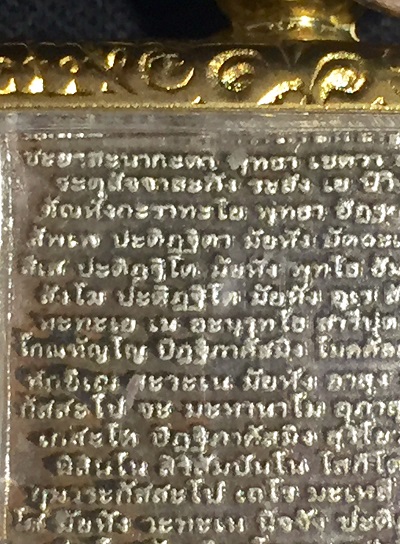 ชะยาสะนากะตา พุทธา เชตวา
ระตุสัจจาสะภัง ระสัง เย ปิวิ
ตัณหังกะราทะโย พุทธา อัฏฐะ
สัพเพ ปะติฏฐิตา มัยหัง มัตถะเ
สีเส ปะติฏฐิโต มัยหัง พุทโธ ธัม
สังโฆ ปะติฏฐิโต มัยหัง อุเร สั
หะทะเย เม อะนุรุทโธ สารีปุต
โกณฑัญโญ ปิฏฐิภาคัสมิง โมคคัลล
ทักขิเณ สะวะเน มัยหัง อาสุง
กัสสะโป จะ มะหานาโม อุภาสุ
เกสะโต ปิฏฐิภาคัสมิง สุริโย
นิสินโน สิริสัมปันโน โสภิโต
กุมาระกัสสะโป เถโร มะเหสี
โส มัยหัง วะทะเน นิจจัง ปะติ